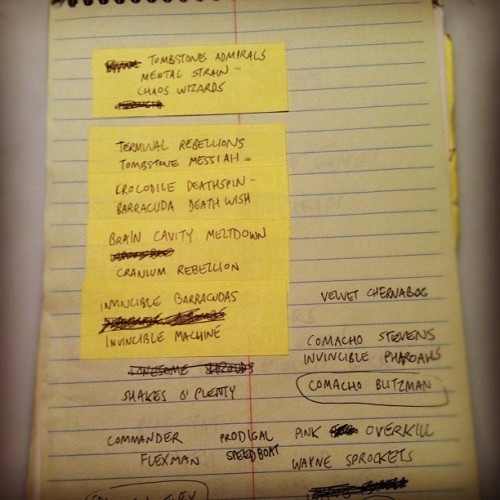 TOMBSTONE ADMIRALS
MENTAL STRAIN -
CHAOS WIZARDS
TERMINAL REBELLIONS
TOMBSTONE MESSIAH -
CROCODILE DEATHSPIN -
BARRACUDA DEATH WISH
BRAIN CAVITY MELTDOWN
CRANIUM REBELLION
INVINCIBLE BARRACUDAS
INVINCIBLE MACHINE
VELVET CHERNABOG
COMACHO STEVENS
INVINCIBLE PHAROAHS
COMACHO BLITZMAN
LONESOME
SHAKES O' PLENTY
COMMANDER FLEXMAN
PRODIGAL SPEEDBOAT
PINK OVERKILL
WAYNE SPROCKETS